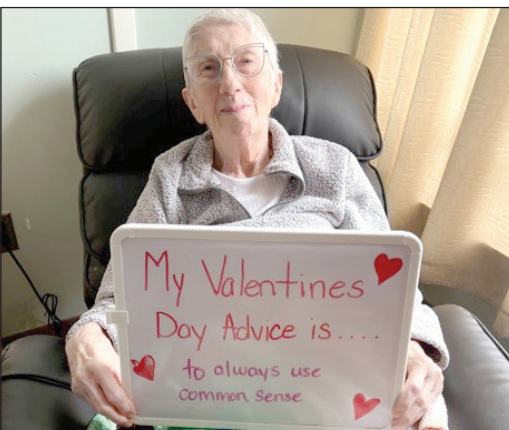 My Valentines
Day Advice is....
to always use
common sense